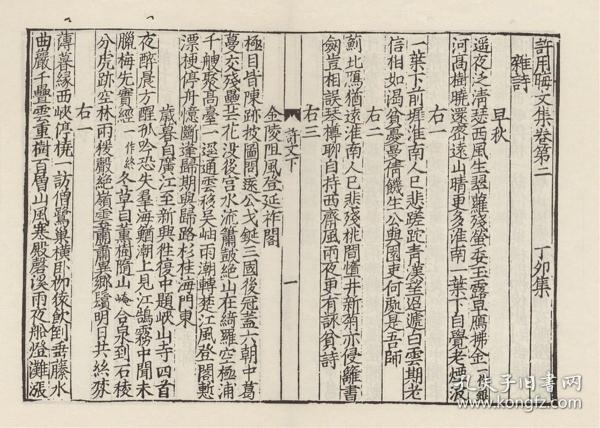 許用晦文集卷第二 丁卯集
雜詩
早秋
遥夜泛清瑟西風生翠蘿殘螢委玉露早鴈拂金一作銀
河高樹曉還密遠山晴更多淮南一葉下自覺老煙波
右一
一葉下前墀淮南人已悲蹉跎青漢望迢遞白雲期老
信相如渴貧憂曼倩饑生公與園吏何處是吾師
右二
薊北鴈猶遠淮南人已悲殘桃間墮井新菊亦侵籬書
劒豈相誤琴樽聊自持西齋風雨夜更有詠貧詩
右三
許文下 一
金陵阻風登延祚閣
極目皆陳跡披圖問遠公戈鋋三國後冠蓋六朝中葛
蔓交殘壘芒花没後宫水流簫鼓絶山在綺羅空極浦
千艘聚高臺一逕通雲移吴岫雨潮轉楚江風登閣慙
漂梗停舟憶斷蓬歸期與歸路杉桂海門東
歲暮自廣江至新興往復中題峽山寺四首
夜醉晨方醒孤吟恐失羣海鰌潮上見江鵠霧中聞未
臘梅先實經一作終冬草自薫樹隨山崦合泉到石稜
分虎跡空林雨猨聲絶嶺雲蕭蕭異鄉鬢明日共絲棼
薄暮緣西峽停橈一訪僧鷺巢横卧柳猨飲倒垂藤水
曲巖千疊雲重樹百層山風寒殿磬溪雨夜船燈灘漲
孔夫子旧书网
www.kongfz.com